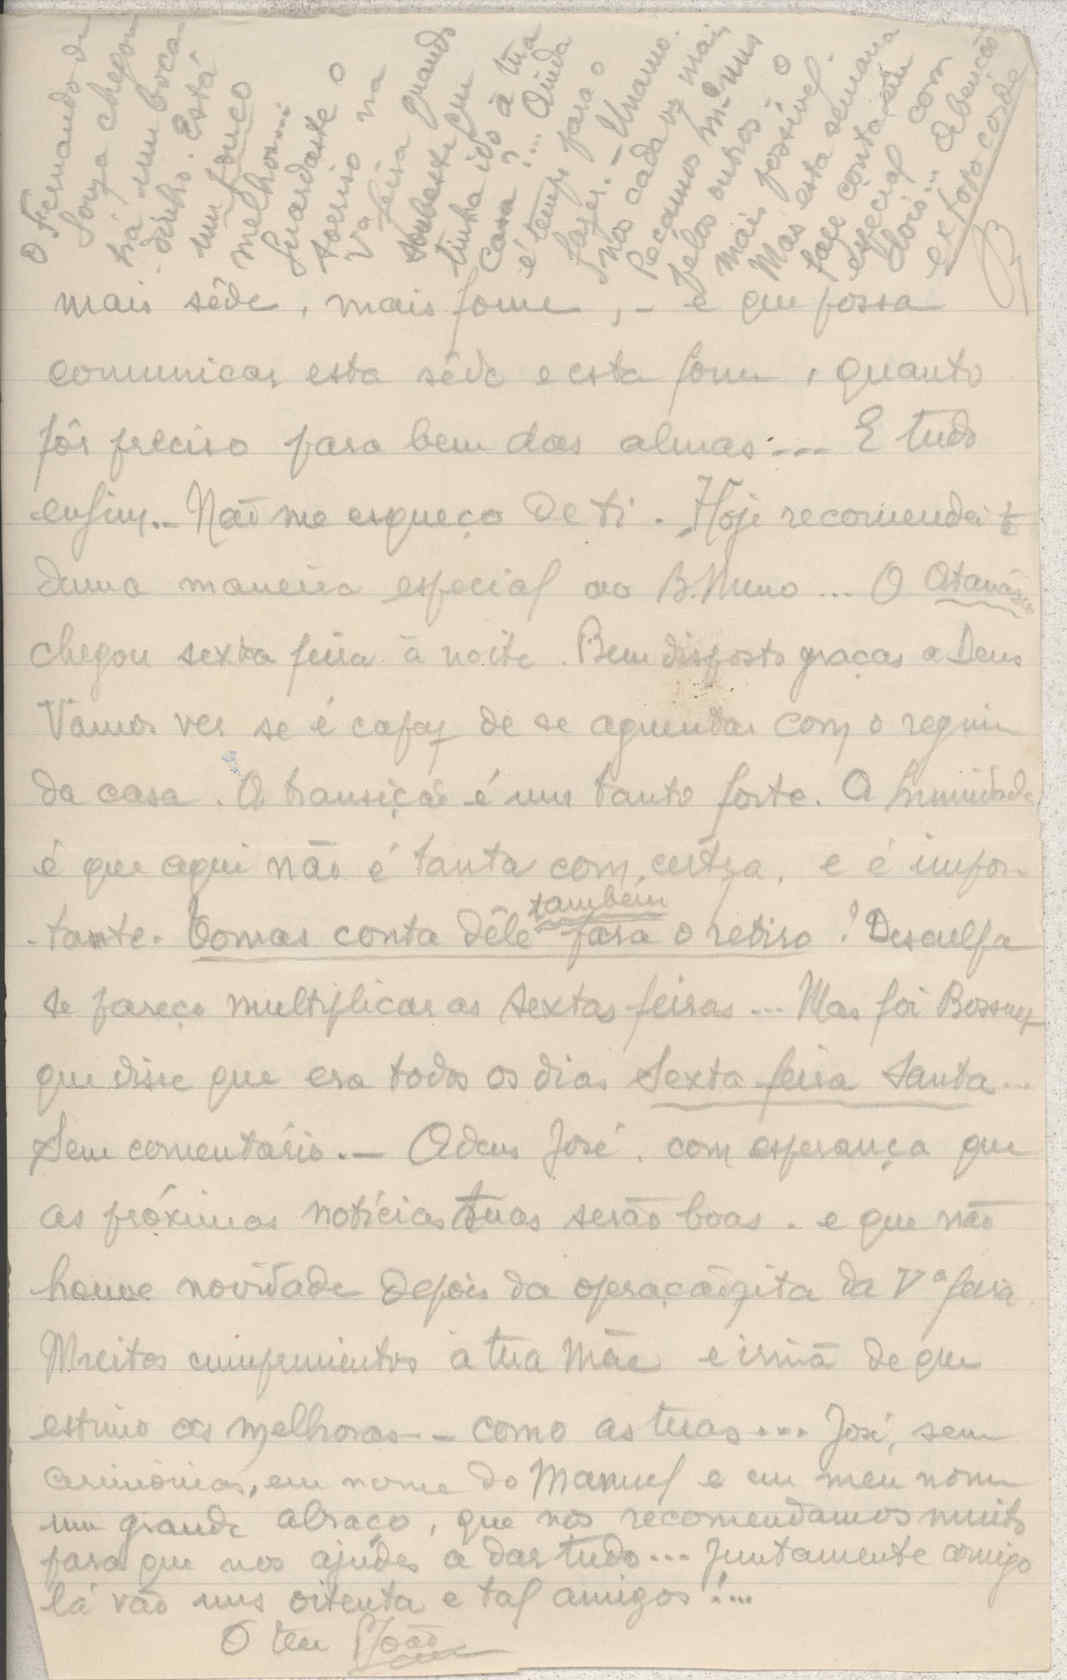 mais sêde, mais fome, – e que possa
comunicar esta sêde e esta fome, quanto
fôr preciso para bem das almas... E tudo
enfim. – Não me esqueço de ti. Hoje recomendei-te
duma maneira especial ao B. Nuno... O Atanásio
chegou sexta feira à noite. Bem disposto graças a Deus
Vamos ver se é capaz de se aguentar com o regime
da casa. A transição é um tanto forte. A humidade
é que aqui não é tanta com certeza, e é impor-
tante. Tomas conta dêle também para o retiro! Desculpa
se pareço multiplicar as sextas feiras... Mas foi Bossuet
que disse que era todos os dias Sexta feira Santa...
Sem comentário. – Adeus José, com esperança que
as próximas notícias tuas serão boas. e que não
houve novidade depois da operaçãozita da Vª feira.
Muitos cumprimentos à tua Mãe e irmã de que
estimo as melhoras – como as tuas... José, sem
cerimónias, em nome do Manuel e em meu nome
um grande abraço, que nos recomendamos muito
para que nos ajudes a dar tudo... Juntamente comigo
lá vão uns oitenta e tal amigos!...
O teu João
O Fernando de
Souza chegou
há um boca-
dinho. Está
um pouco
melhor...
Guardaste o
sorriso na
Vª feira quando
soubeste que
tinha ido à tua
casa?... Ainda
é tempo para o
fazer. –
nos cada vez mais
Peçamos
pelos outros o
mais possível.
Mas esta semana
faço conta em
especial com
dois...